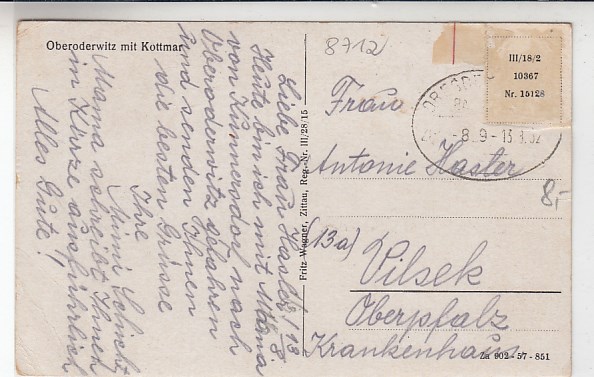 Oberoderwitz mit Kottmar
8712
III/18/2
10367
Nr. 15128
-8. 9-13.1.52
Liebe Frau Hasler! 13/8
Heute bin ich mit Mama
von Kunnersdorf nach
Oberoderwitz gefahren
und senden Ihnen
die besten Grüsse
Ihre
Mimi
Mama schreibt Ihnen
in Kürze ausführlich
Alles Gute!
Fritz Wagner, Zittau, Reg.-Nr. III/28/15
Frau
Antonie Hasler
8,-
(13a)
Vilsek
Oberpfalz
Krankenhaus
Za 902-57-851